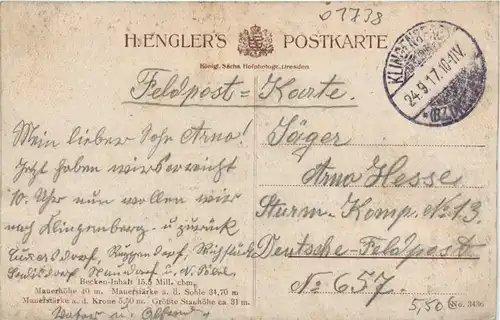 01738
H. ENGLER'S POSTKARTE
Königl. Sächs. Hofphotogr., Dresden
24.9.17. 10-11V.
Feldpost-Karte.
Mein lieber Sohn Arno!
Jetzt haben wirs erreicht
10. Uhr nun wollen wir
nach Klingenberg u. zurück
Ruppendorf,
Naundorf u.
Jäger
Arno Hesse
Sturm-Komp. No. 13.
Deutsche-Feldpost
No 657.
Becken-Inhalt 15,5 Mill. cbm,
Mauerhöhe 40 m. Mauerstärke a. d. Sohle 34,70 m
Mauerstärke a. d. Krone 5,50 m. Größte Stauhöhe ca. 31 m.
Vater u.
No. 3436
5,50